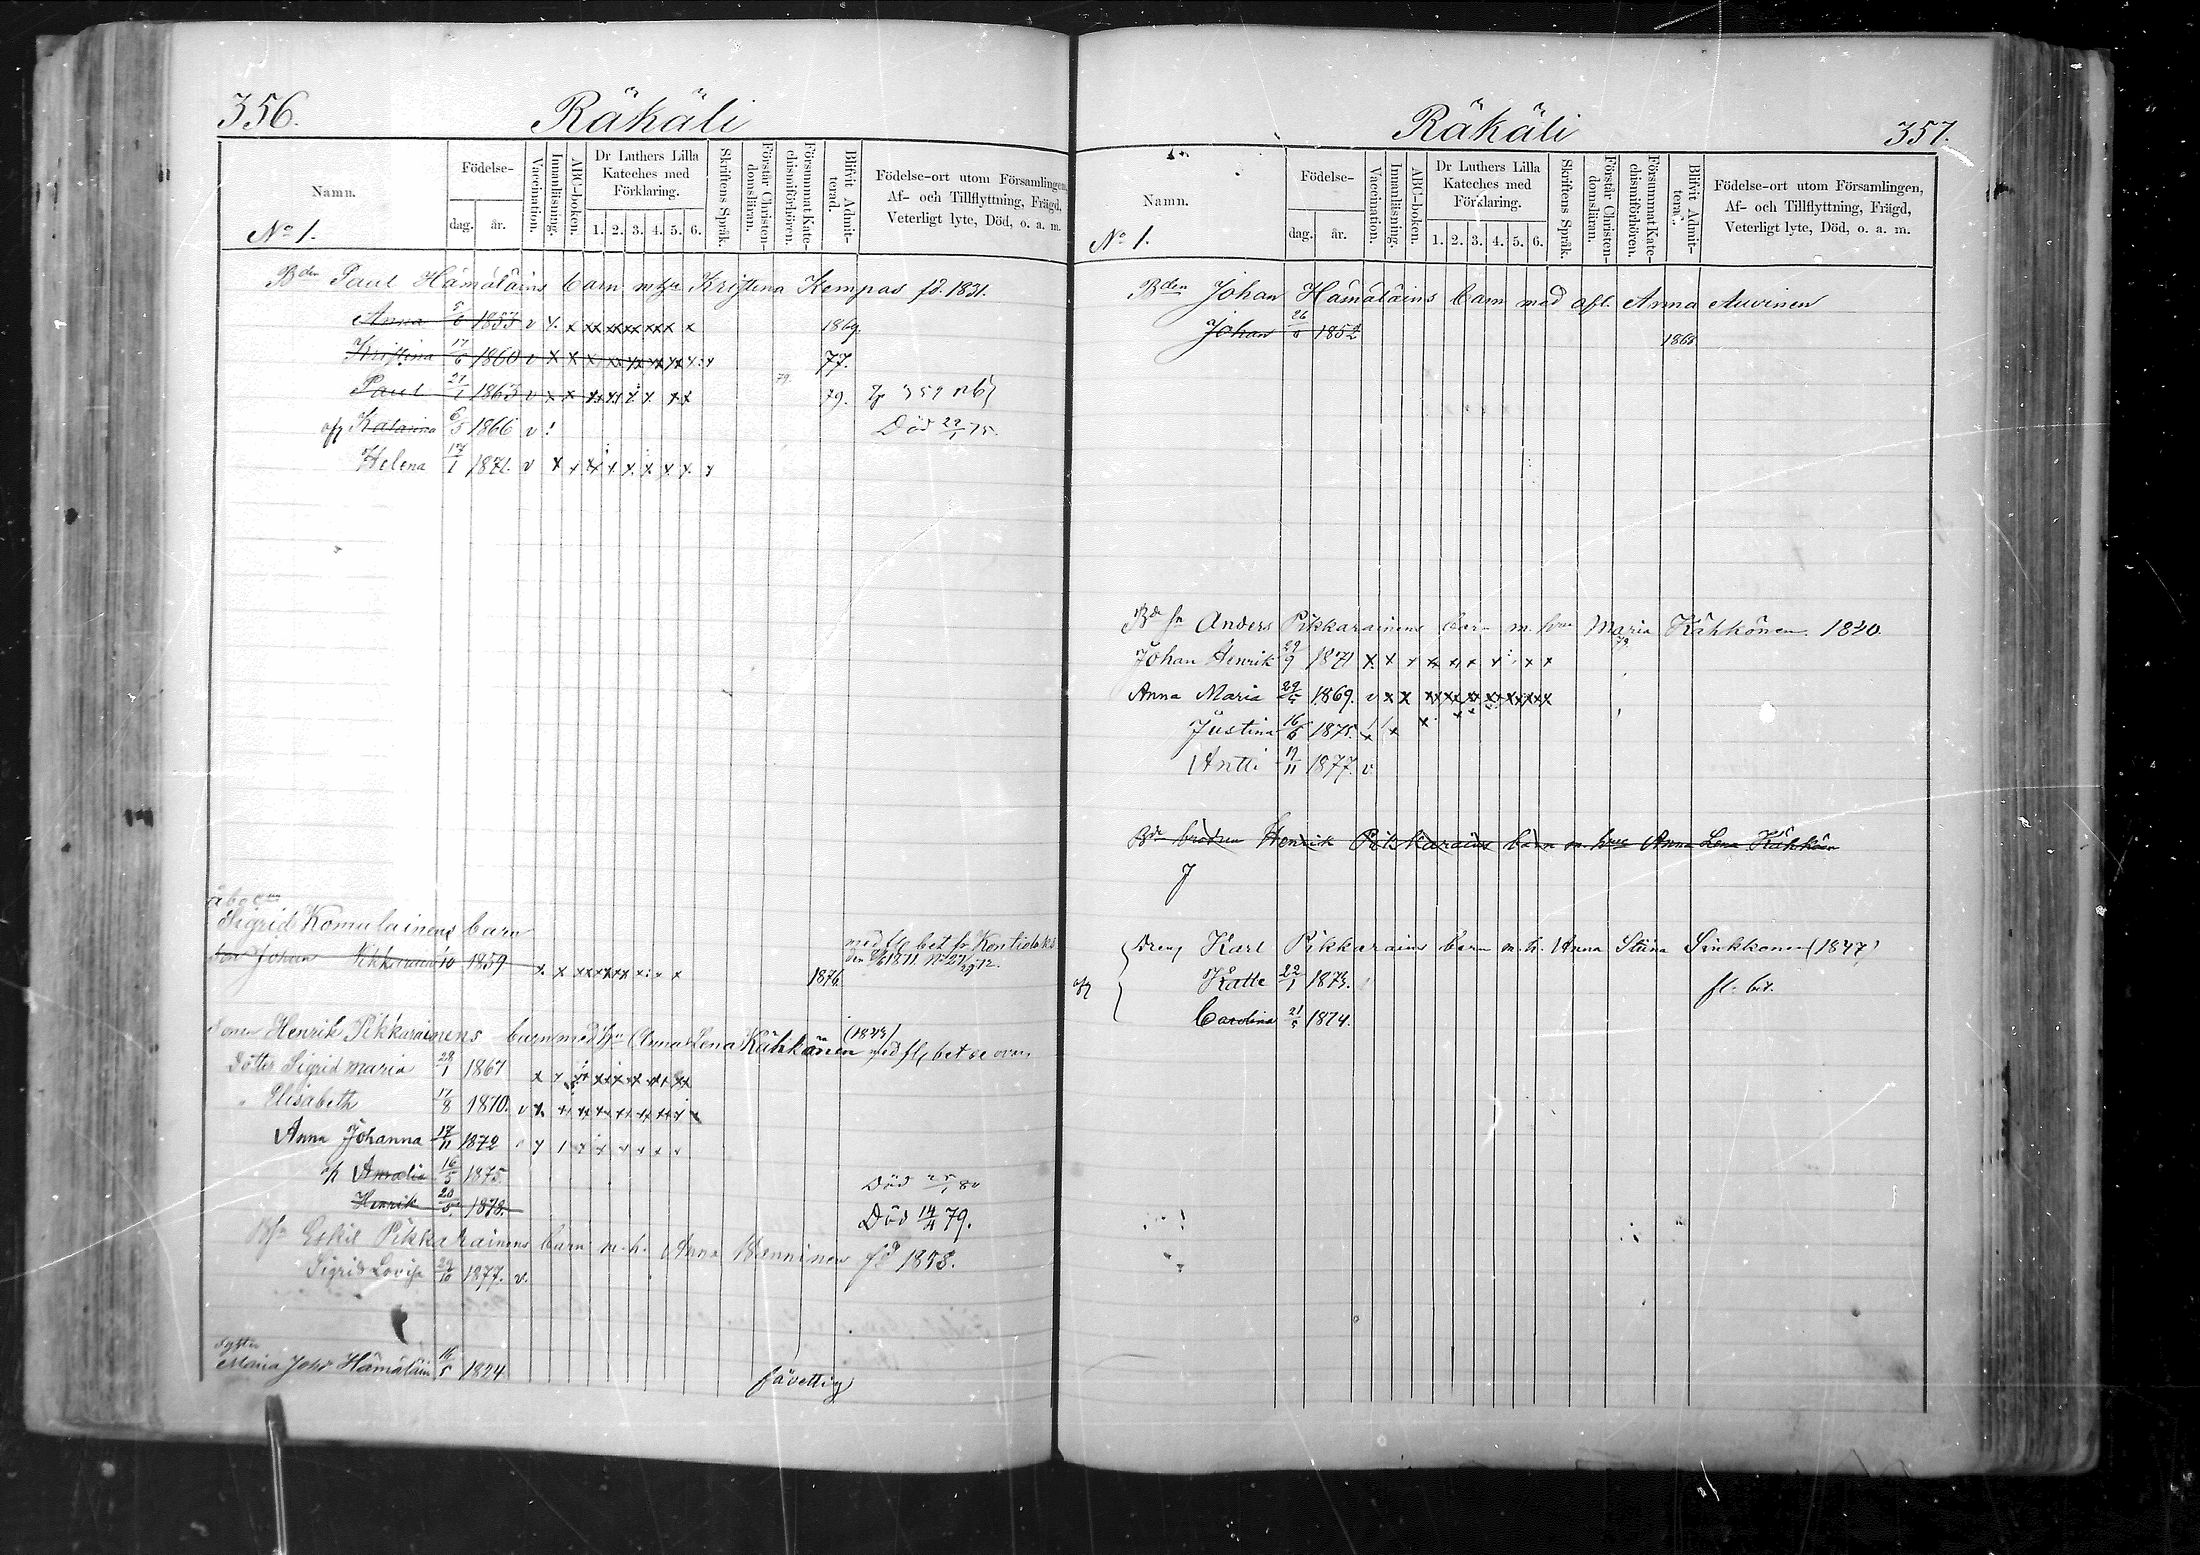 356.
Räkäli
Namn.
No 1.
Födelse-
dag.
år.
Vaccination.
Innanläsning.
ABC-boken.
Dr Luthers Lilla Kateches med Förklaring.
1. 2. 3. 4. 5. 6.
Skriftens Språk.
Förstår Christendomsläran.
Försummat Katechismiförhören.
Blifvit Admitterad.
Födelse-ort utom Församlingen,
Af- och Tillflyttning, Frägd,
Veterligt lyte, Död, o. a. m.
Bden Paul Hämäläins barn m hu Kristina Kempas fd. 1831.
Anna 1853 v x x xx xx xx xx x x 1869.
Kristina 17/6 1860 v x x 77.
Paul 21/1 1863 v x x 79. 79. 359
Katarina 6/5 1866 v! Död 22/1 75.
Helena 17/1 1871. v x x x x x x x x x
Sigrid Komulainens barn
Son Johan Pikkarainen 10 1859 x x 1876.
med fl. bet fr Kontiolaks
Sonen Henrik Pikkarainens barn med hu Anna Lena Kähkönen (1843) med fl. bet se ovan
Dotter Sigrid Maria 28/1 1867
" Elisabeth 17/8 1870. v
Anna Johanna 17/11 1872
Amalia 16/5 1875. Död 25/1 80
Henrik 20/5 1878. Död 14/4 79.
Eskil Pikkarainens barn m. h. Anna Wänninen fd 1858.
Sigrid Lovisa 29/10 1877. v.
Syster
Maria Johd. Hämäläin 16/5 1824 fåvettig
Räkäli
357.
Namn.
No 1.
Födelse-
dag.
år.
Vaccination.
Innanläsning.
ABC-boken.
Dr Luthers Lilla Kateches med Förklaring.
1. 2. 3. 4. 5. 6.
Skriftens Språk.
Förstår Christendomsläran.
Försummat Katechismiförhören.
Blifvit Admittera.
Födelse-ort utom Församlingen,
Af- och Tillflyttning, Frägd,
Veterligt lyte, Död, o. a. m.
Bden Johan Hämäläins barn med afl. Anna Auvinen
Johan 26 1852 1868
Anders Pikkarainens barn m. hu Maria Kähkönen 1840.
Johan Henrik 29/9 1871 x x x x x x x x x
Anna Maria 1869. v x x
Justina 16 1875.
Antti 11 1877. v.
Bde brodren Henrik Pikkarains barn m. hu Anna Lena Kähkön
J
Dreng Karl Pikkarains barn m. h. Anna Stiina Sinkkonen (1847)
Kalle 22/1 1873. fl. bet.
Carolina 21/5 1874.